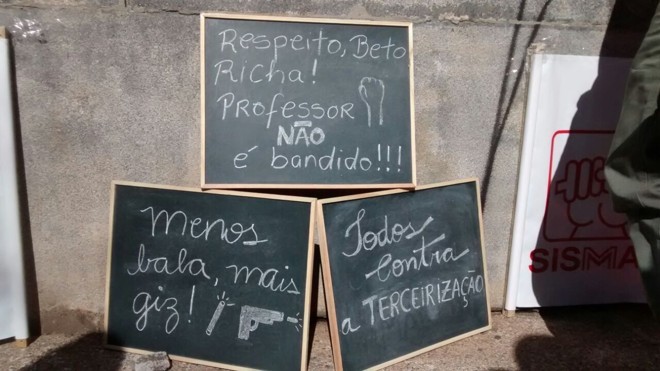 Respeito, Beto
Richa!
Professor
NÃO
é bandido!!!
Menos
bala, mais
giz!
Todos
contra
a TERCEIRIZAÇÃO
SISMA